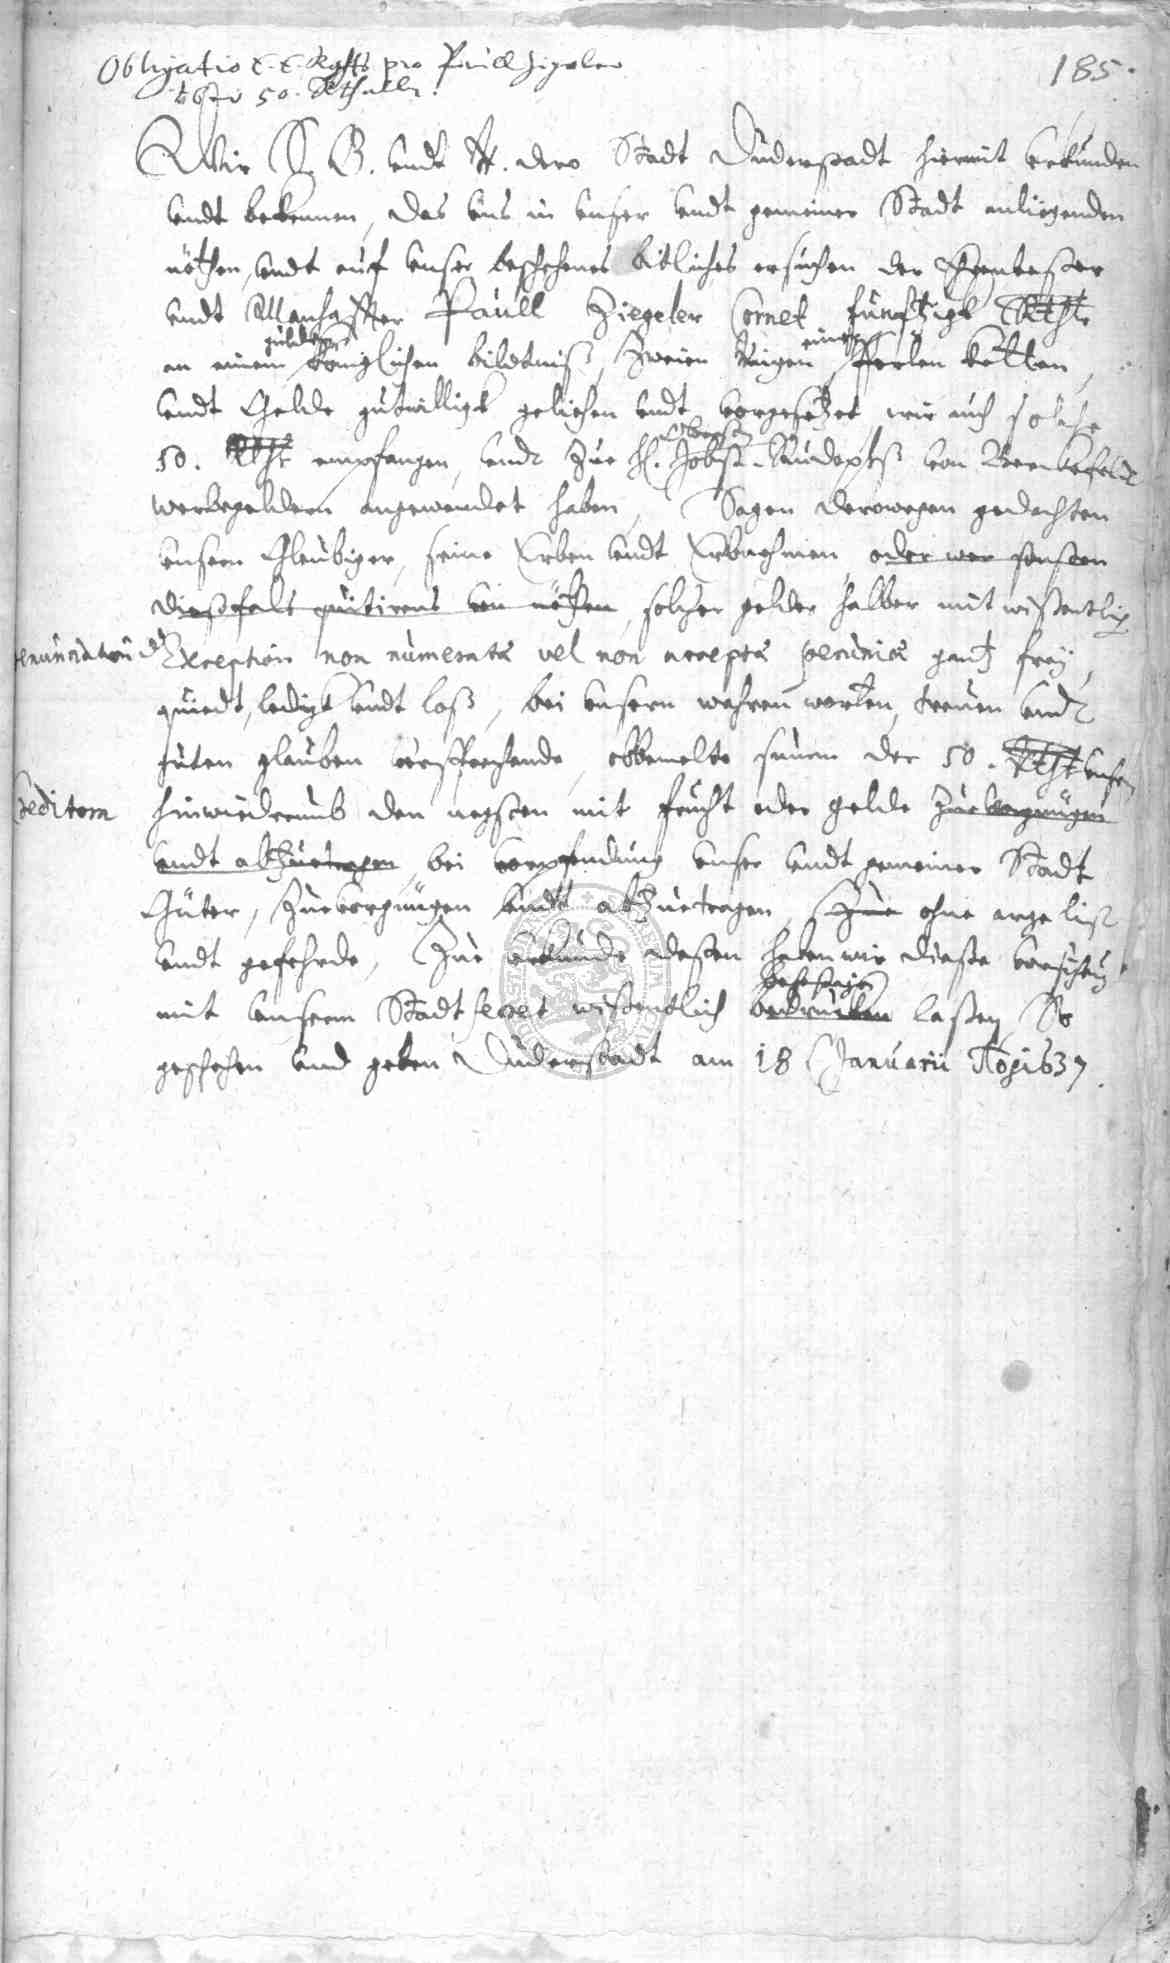 Obligatio E. E. Rahts pro Paull Ziegeler
über 50. Rthaler.
185.
Wir B. B. undt R. dero Stadt Duderstadt hiermit uhrkunden
undt bekennen, das uns in unser undt gemeiner Stadt anliegenden
nöthen, undt auf unser beschehenes bitliches ersuchen der Ehrnvester
undt Manhaffter Paull Ziegeler Cornet funftzigk Rthlr
güldenen
einer
an einem königlichen bildtniß, Zweien Ringen Perlen ketten,
undt Gelde gutwilligk geliehen undt vorgesetzet wir auch solche
50. Rthlr empfangen, undt Zue H. Jobst Rudolphß von
Obersten
werbegeldern angewendet haben, Sagen derowegen gedachten
unsern Gleubiger, seine Erben undt Erbnehmen, oder wer sonsten
dießfals quitirens von nöthen, solcher gelder halber mit wißentlich
renunciation der Exception non numeratæ vel non acceptæ pecuniæ gantz frey,
quiedt, ledigk undt loß, bei unsern wahren worten, treuen undt
guten glauben versprechende, obbemelte summ der 50. Rthlr unsern
Creditorn hinwiederumb den negsten mit frucht oder gelde Zuevergnügen
undt abZuetragen, bei verpfendung unser undt gemeiner Stadt
Güter, Zuevergnügen undt abZuetragen, Zue ohne arge list
undt gefehrde, Zue uhrkunde deßen haben wir dieße
mit unserm Stadt secret wißentlich bedrucken laßen, So
geschehen und geben Duderstadt am 18 Januarii Ao 1637.